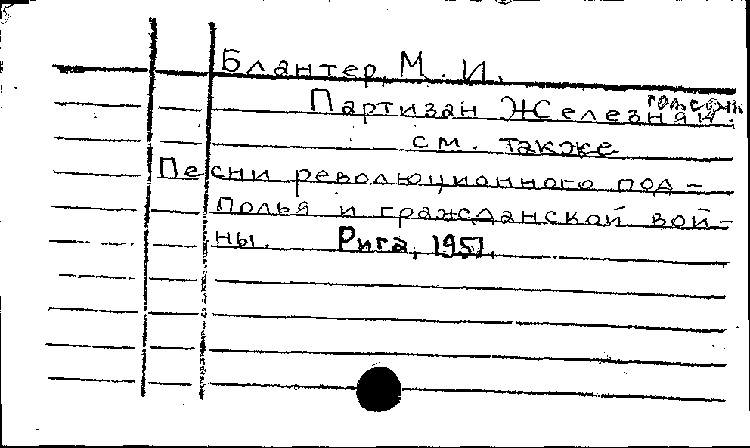 Блантер, М. И.
Партизан Железняк.
см. также
Песни революционного под-
полья и гражданской вой-
ны. Рига, 1951.